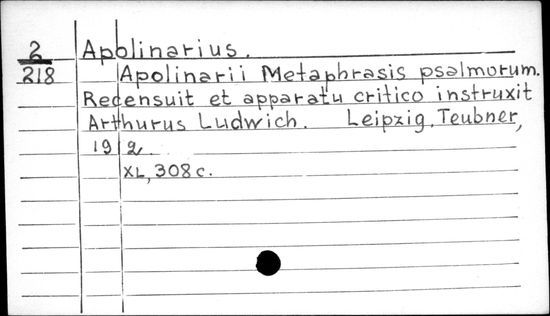 2 Apolinarius.
218 Apolinarii Metaphrasis psalmorum.
Recensuit et apparatu critico instruxit
Arthurus Ludwich. Leipzig, Teubner,
1912.
XL, 308 c.